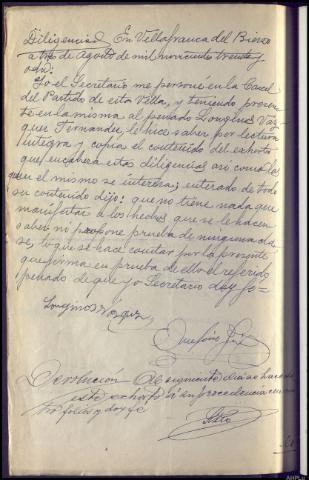 Diligencia En Villafranca del Bierzo
a tres de Agosto de mil novecientos treinta y
ocho:
Yo el Secretario me personé en la Carcel
del Partido de esta Villa, y teniendo presen
te en la misma al penado Longinos Vaz
quez Fernandez, le hice saber por lectura
integra y copia el contenido del exhorto
que encabeza estas diligencias asi como los
que el mismo se interesa; enterado de todo
su contenido dijo: que no tiene nada que
manifestar a los hechos que se le hacen
saber ni propone prueba de ninguna cla
se, lo que se hace constar por la presente
que firma en prueba de ello el referido
penado de que yo Secretario doy fe=
Longinos Vazquez
Devolución En seguimiento
este exhorto a su procedencia en
folios y doy fe